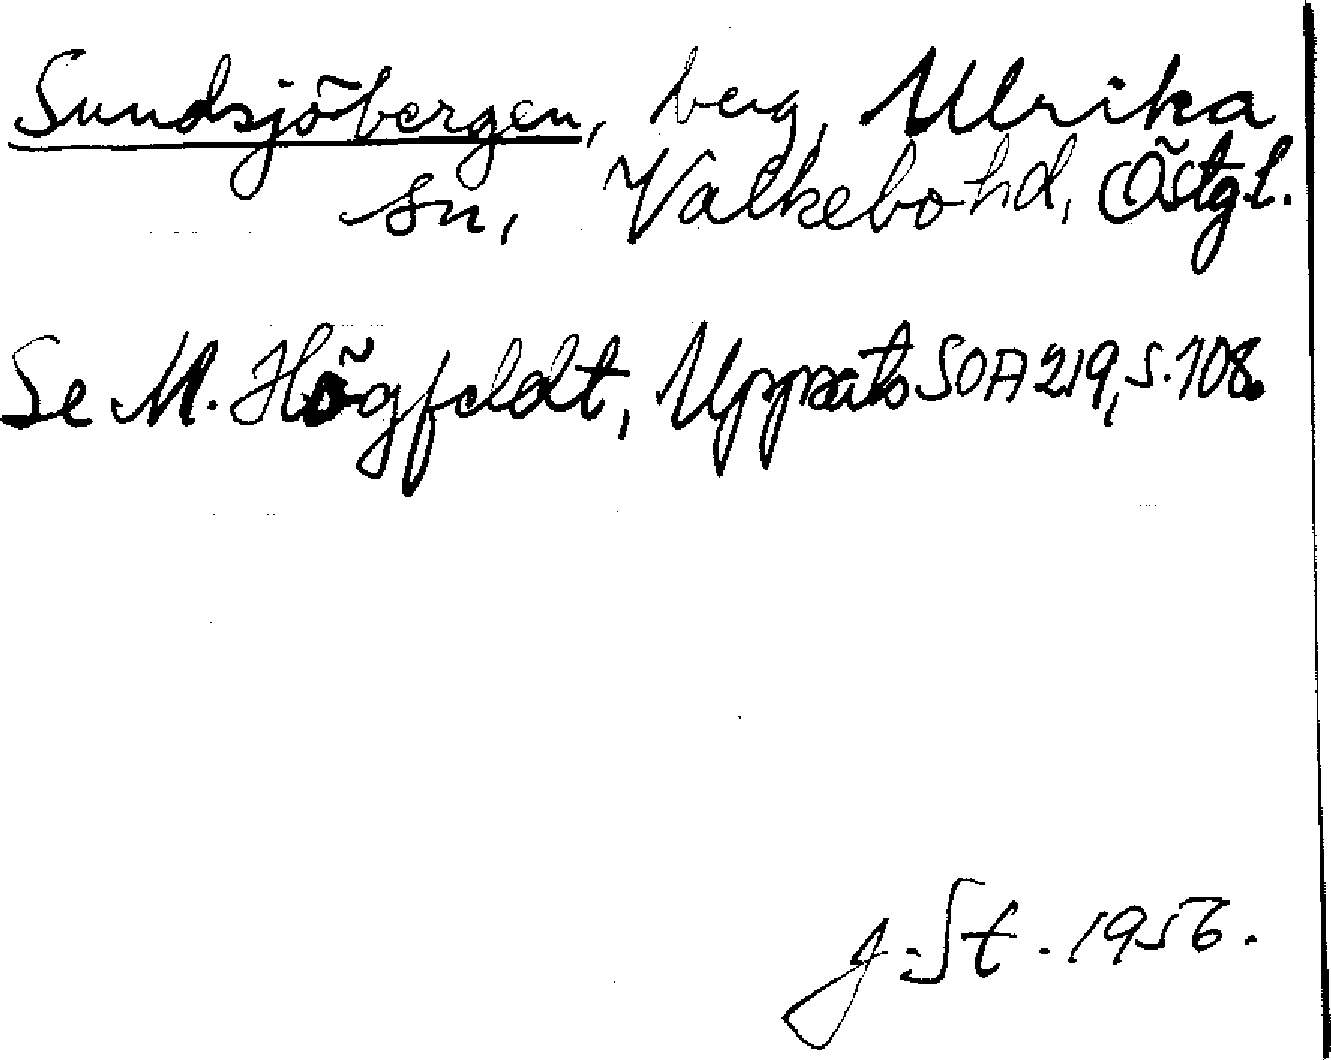 Sundsjöbergen, berg, Ulrika
sn, Valkebo hd, Östgl.
Se M. Högfeldt, Uppsats SOA 219, s. 108.
J. St. 1956.